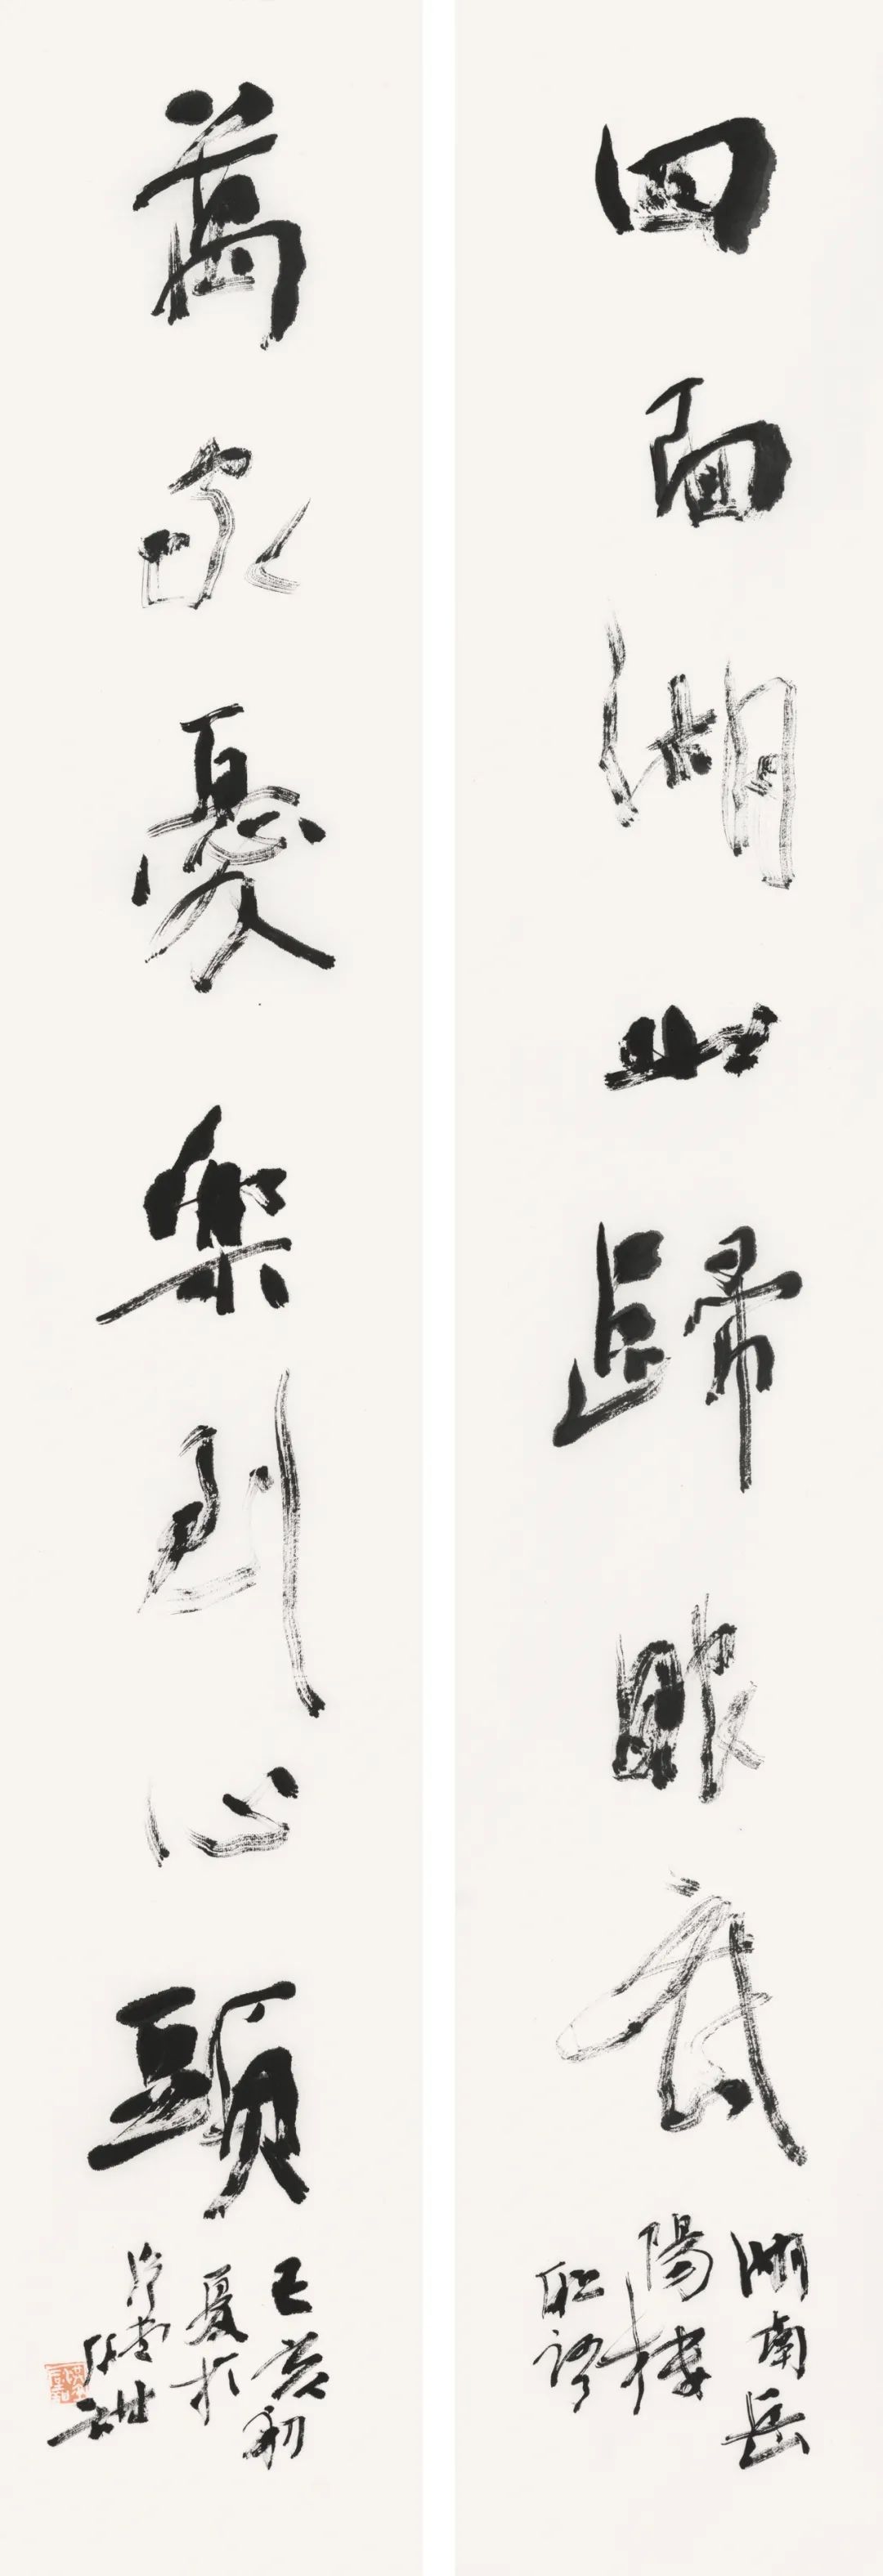 四面湖山歸眼底
湖南岳
陽樓
联語
萬家憂樂到心頭
己亥初
夏於